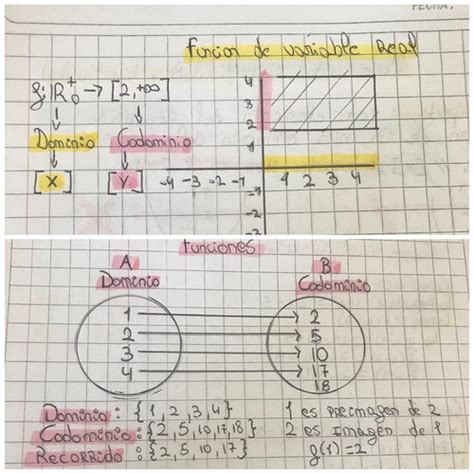 FECHA:
función de variable Real
g: IR₀⁺ → [2,+∞]
Dominio Codominio
[X] [Y]
4
3
2
1
-4 -3 -2 -1 1 2 3 4
-1
-2
funciones
A B
Dominio Codominio
1 → 2
2 → 5
3 → 10
4 → 17
18
Dominio: {1,2,3,4} 1 es preimagen de 2
Codominio: {2,5,10,17,18} 2 es Imagen de 1
Recorrido: {2,5,10,17} g(1)=2